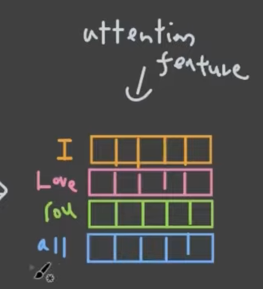 attention
feature
I
Love
You
all